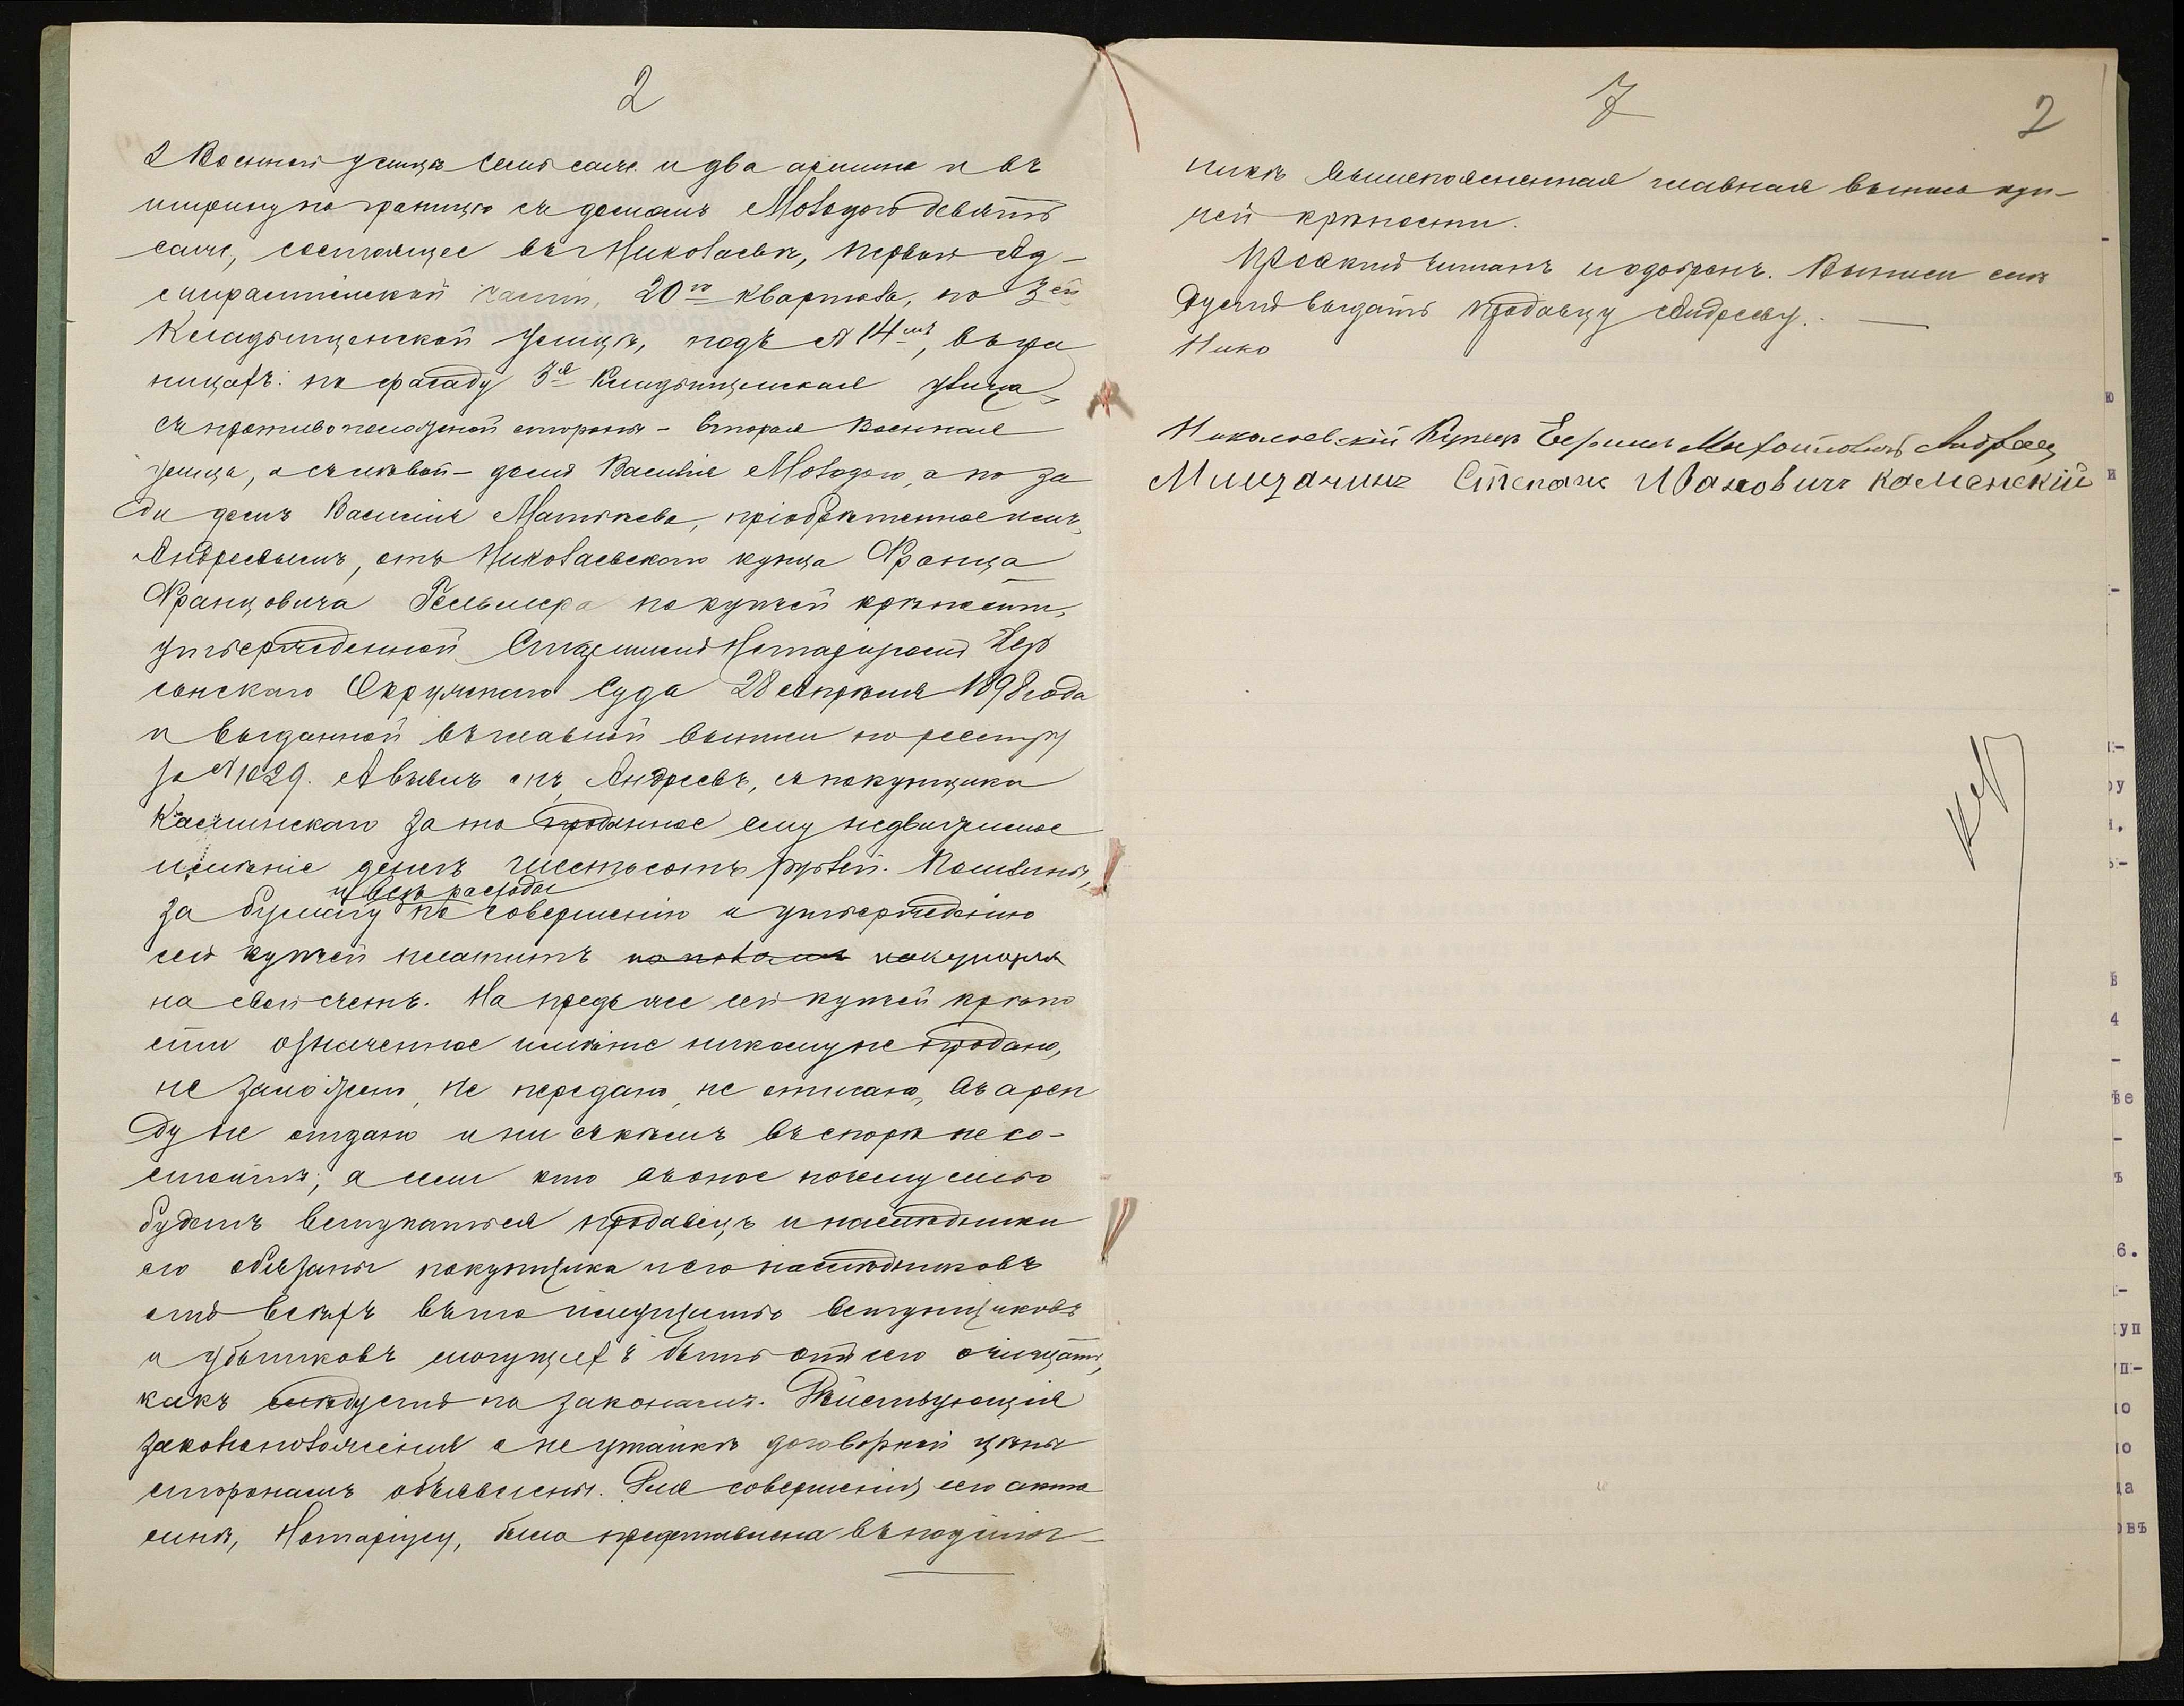 2
2 Военной улицѣ семь саж. и два аршина и въ
ширину по границѣ съ домомъ Молодого девять
саж, состоящее въ Николаевѣ, первой Ад-
миралтейской части, 20го квартала, по 3ей
Кладбищенской улицѣ, подъ № 14мъ, въ гра
ницахъ: по фасаду 3я Кладбищенская улица,
съ противоположной стороны - Вторая Военная
улица, а съ лѣвой - домъ Василія Молодого, а по за
ди домъ Василія Матвѣева, пріобрѣтенное имъ,
Андреевымъ, отъ Николаевскаго купца Франца
Францовича по купчей крѣпости,
утвержденной Старшимъ Нотаріусомъ Хер
сонскаго Окружнаго Суда 28 апрѣля 1898 года
и выданной въ главной выписи по реестру
за № 1029. А взялъ онъ, Андреевъ, съ покупщика
за то проданное ему недвижимое
имѣніе денегъ шестьсотъ рублей. Пошлины,
и всѣ расходы
за бумагу по совершенію и утвержденію
сей купчей платитъ пополамъ
на свой счетъ. На предъ же сей купчей крѣпо
сти означенное имѣніе никому не продано,
не заложено, не передано, не описано, въ арен
ду не отдано и ни съ кѣмъ въ спорѣ не со-
стоитъ; а если кто въ оное почему либо
будетъ вступаться продавецъ и наслѣдники
его обязаны покупщика и его наслѣдниковъ
отъ всѣхъ въ то имущество вступщиковъ
и убытковъ могущихъ быть отъ сего очищать,
какъ слѣдуетъ по законамъ. Дѣйствующія
законоположенія о не утайкѣ договорной цѣны
сторонамъ объявлены. Для совершенія сего акта
мнѣ, Нотаріусу, была представлена въ подлин-
7
2
никѣ вышепоясненная главная выпись куп-
чей крѣпости.
Проектъ читанъ и одобренъ. Выписи слѣ
дуетъ выдать продавцу Андрееву. -
Нико
Николаевскій Купецъ Михайловичъ Андреевъ
Мищанинъ Степанъ Ивановичъ Каменскій